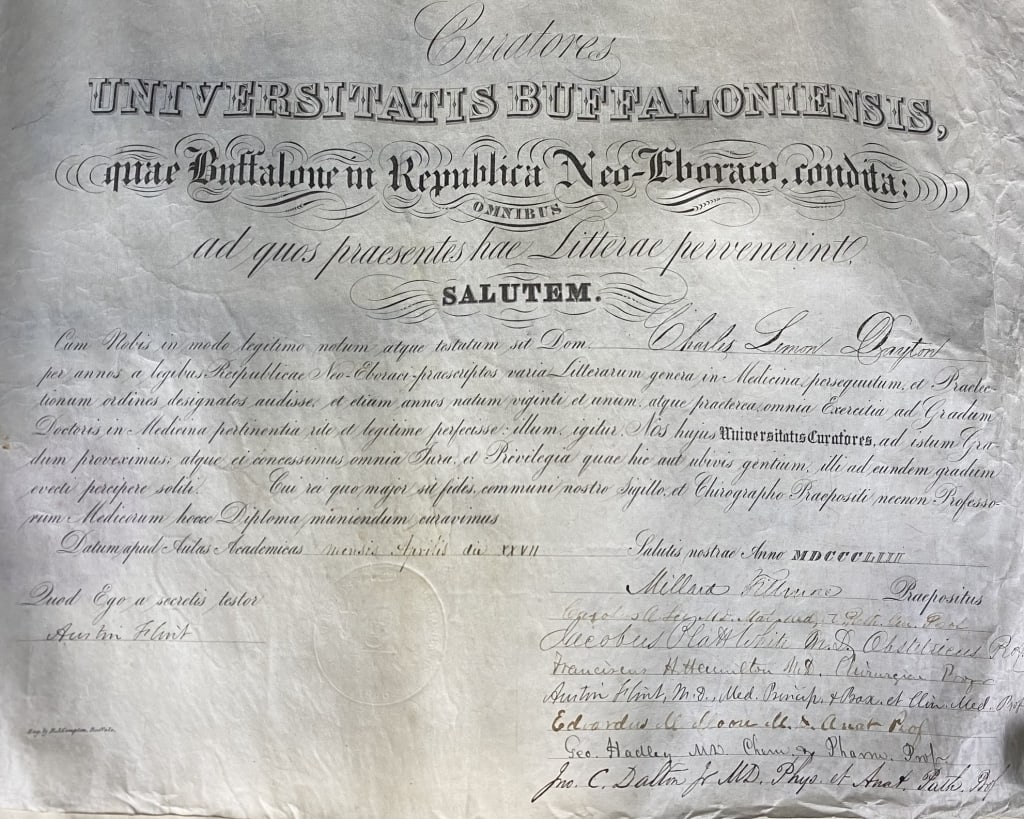 Curatores
UNIVERSITATIS BUFFALONIENSIS,
quae Buffalone in Republica Neo-Eboraco, condita:
OMNIBUS
ad quos praesentes hae Litterae pervenerint,
SALUTEM.
Cum Nobis in modo legitimo notum atque testatum sit Dom. Charles Lemon Dayton
per annos a legibus Reipublicae Neo-Eboraci praescriptos varia Litterarum genera in Medicina, persequutum, et Praelec-
tionum ordines designatos audisse, et etiam annos natum viginti et unum, atque praeterea, omnia Exercitia ad Gradum
Doctoris in Medicina pertinentia rite et legitime perfecisse: illum, igitur, Nos hujus Universitatis Curatores, ad istum Gra-
dum proveximus; atque ei concessimus omnia Jura, et Privilegia quae hic aut ubivis gentium, illi ad eundem gradum
evecti percipere soliti. Cui rei quo major sit fides, communi nostro Sigillo, et Chirographo Praepositi necnon Professo-
rum Medicorum hocce Diploma muniendum curavimus
Datum apud Aulas Academicas mensis Aprilis die XXVII Salutis nostrae Anno MDCCCLIII
Millard Fillmore Praepositus
Quod Ego a secretis testor
Austin Flint
Jacobus Platt White M.D. Obstetricus Prof
Franciscus H. Hamilton M.D. Chirurgiae Prof
Austin Flint, M.D., Med. Princip. & Prax. et Clin. Med. Prof
Edvardus M. Moore M.D. Anat Prof
Geo. Hadley MD. Chem. & Pharm. Prof
Jno. C. Dalton Jr MD. Phys. et Anat. Path. Prof